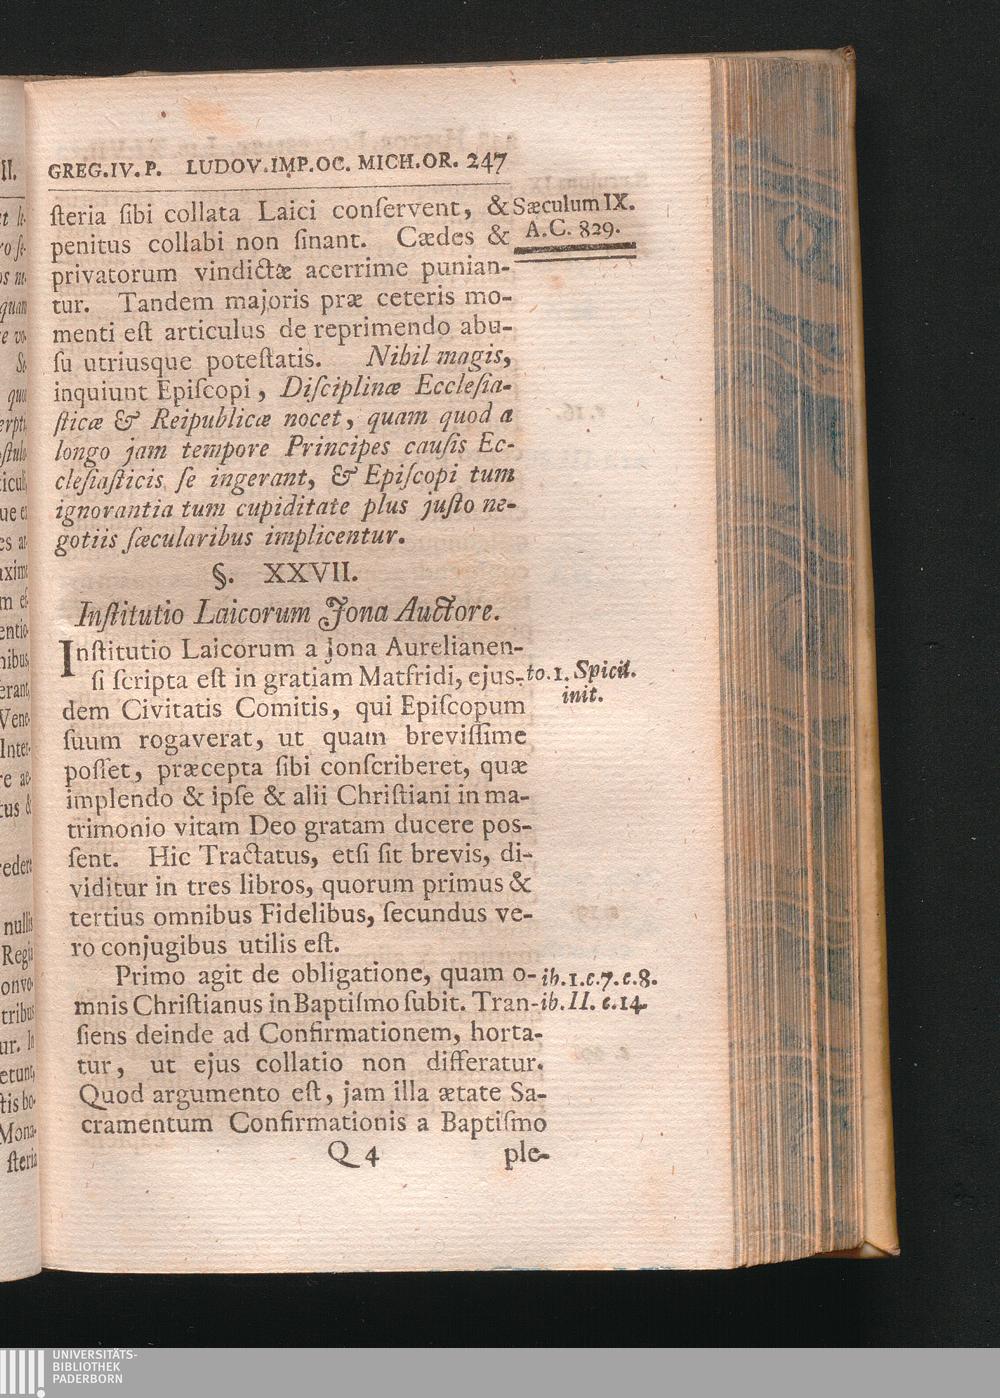 GREG.IV.P. LUDOV.IMP.OC. MICH.OR. 247
ſteria ſibi collata Laici conſervent, &
penitus collabi non ſinant. Cædes &
privatorum vindictæ acerrime punian-
tur. Tandem majoris præ ceteris mo-
menti eſt articulus de reprimendo abu-
ſu utriusque poteſtatis. Nihil magis,
inquiunt Epiſcopi, Diſciplinæ Eccleſia-
ſticæ & Reipublicæ nocet, quam quod a
longo jam tempore Principes cauſis Ec-
cleſiaſticis ſe ingerant, & Epiſcopi tum
ignorantia tum cupiditate plus juſto ne-
gotiis ſæcularibus implicentur.
Sæculum IX.
A.C. 829.
§. XXVII.
Inſtitutio Laicorum Jona Auctore.
Inſtitutio Laicorum a Jona Aurelianen-
ſi ſcripta eſt in gratiam Matfridi, ejus-
dem Civitatis Comitis, qui Epiſcopum
ſuum rogaverat, ut quam breviſſime
poſſet, præcepta ſibi conſcriberet, quæ
implendo & ipſe & alii Chriſtiani in ma-
trimonio vitam Deo gratam ducere pos-
ſent. Hic Tractatus, etſi ſit brevis, di-
viditur in tres libros, quorum primus &
tertius omnibus Fidelibus, ſecundus ve-
ro conjugibus utilis eſt.
to.1. Spicil.
init.
Primo agit de obligatione, quam o-
mnis Chriſtianus in Baptiſmo ſubit. Tran-
ſiens deinde ad Confirmationem, horta-
tur, ut ejus collatio non differatur.
Quod argumento eſt, jam illa ætate Sa-
cramentum Confirmationis a Baptiſmo
ib.1.c.7.c.8.
ib.II.c.14.
Q 4
ple-
UNIVERSITÄTS-
BIBLIOTHEK
PADERBORN